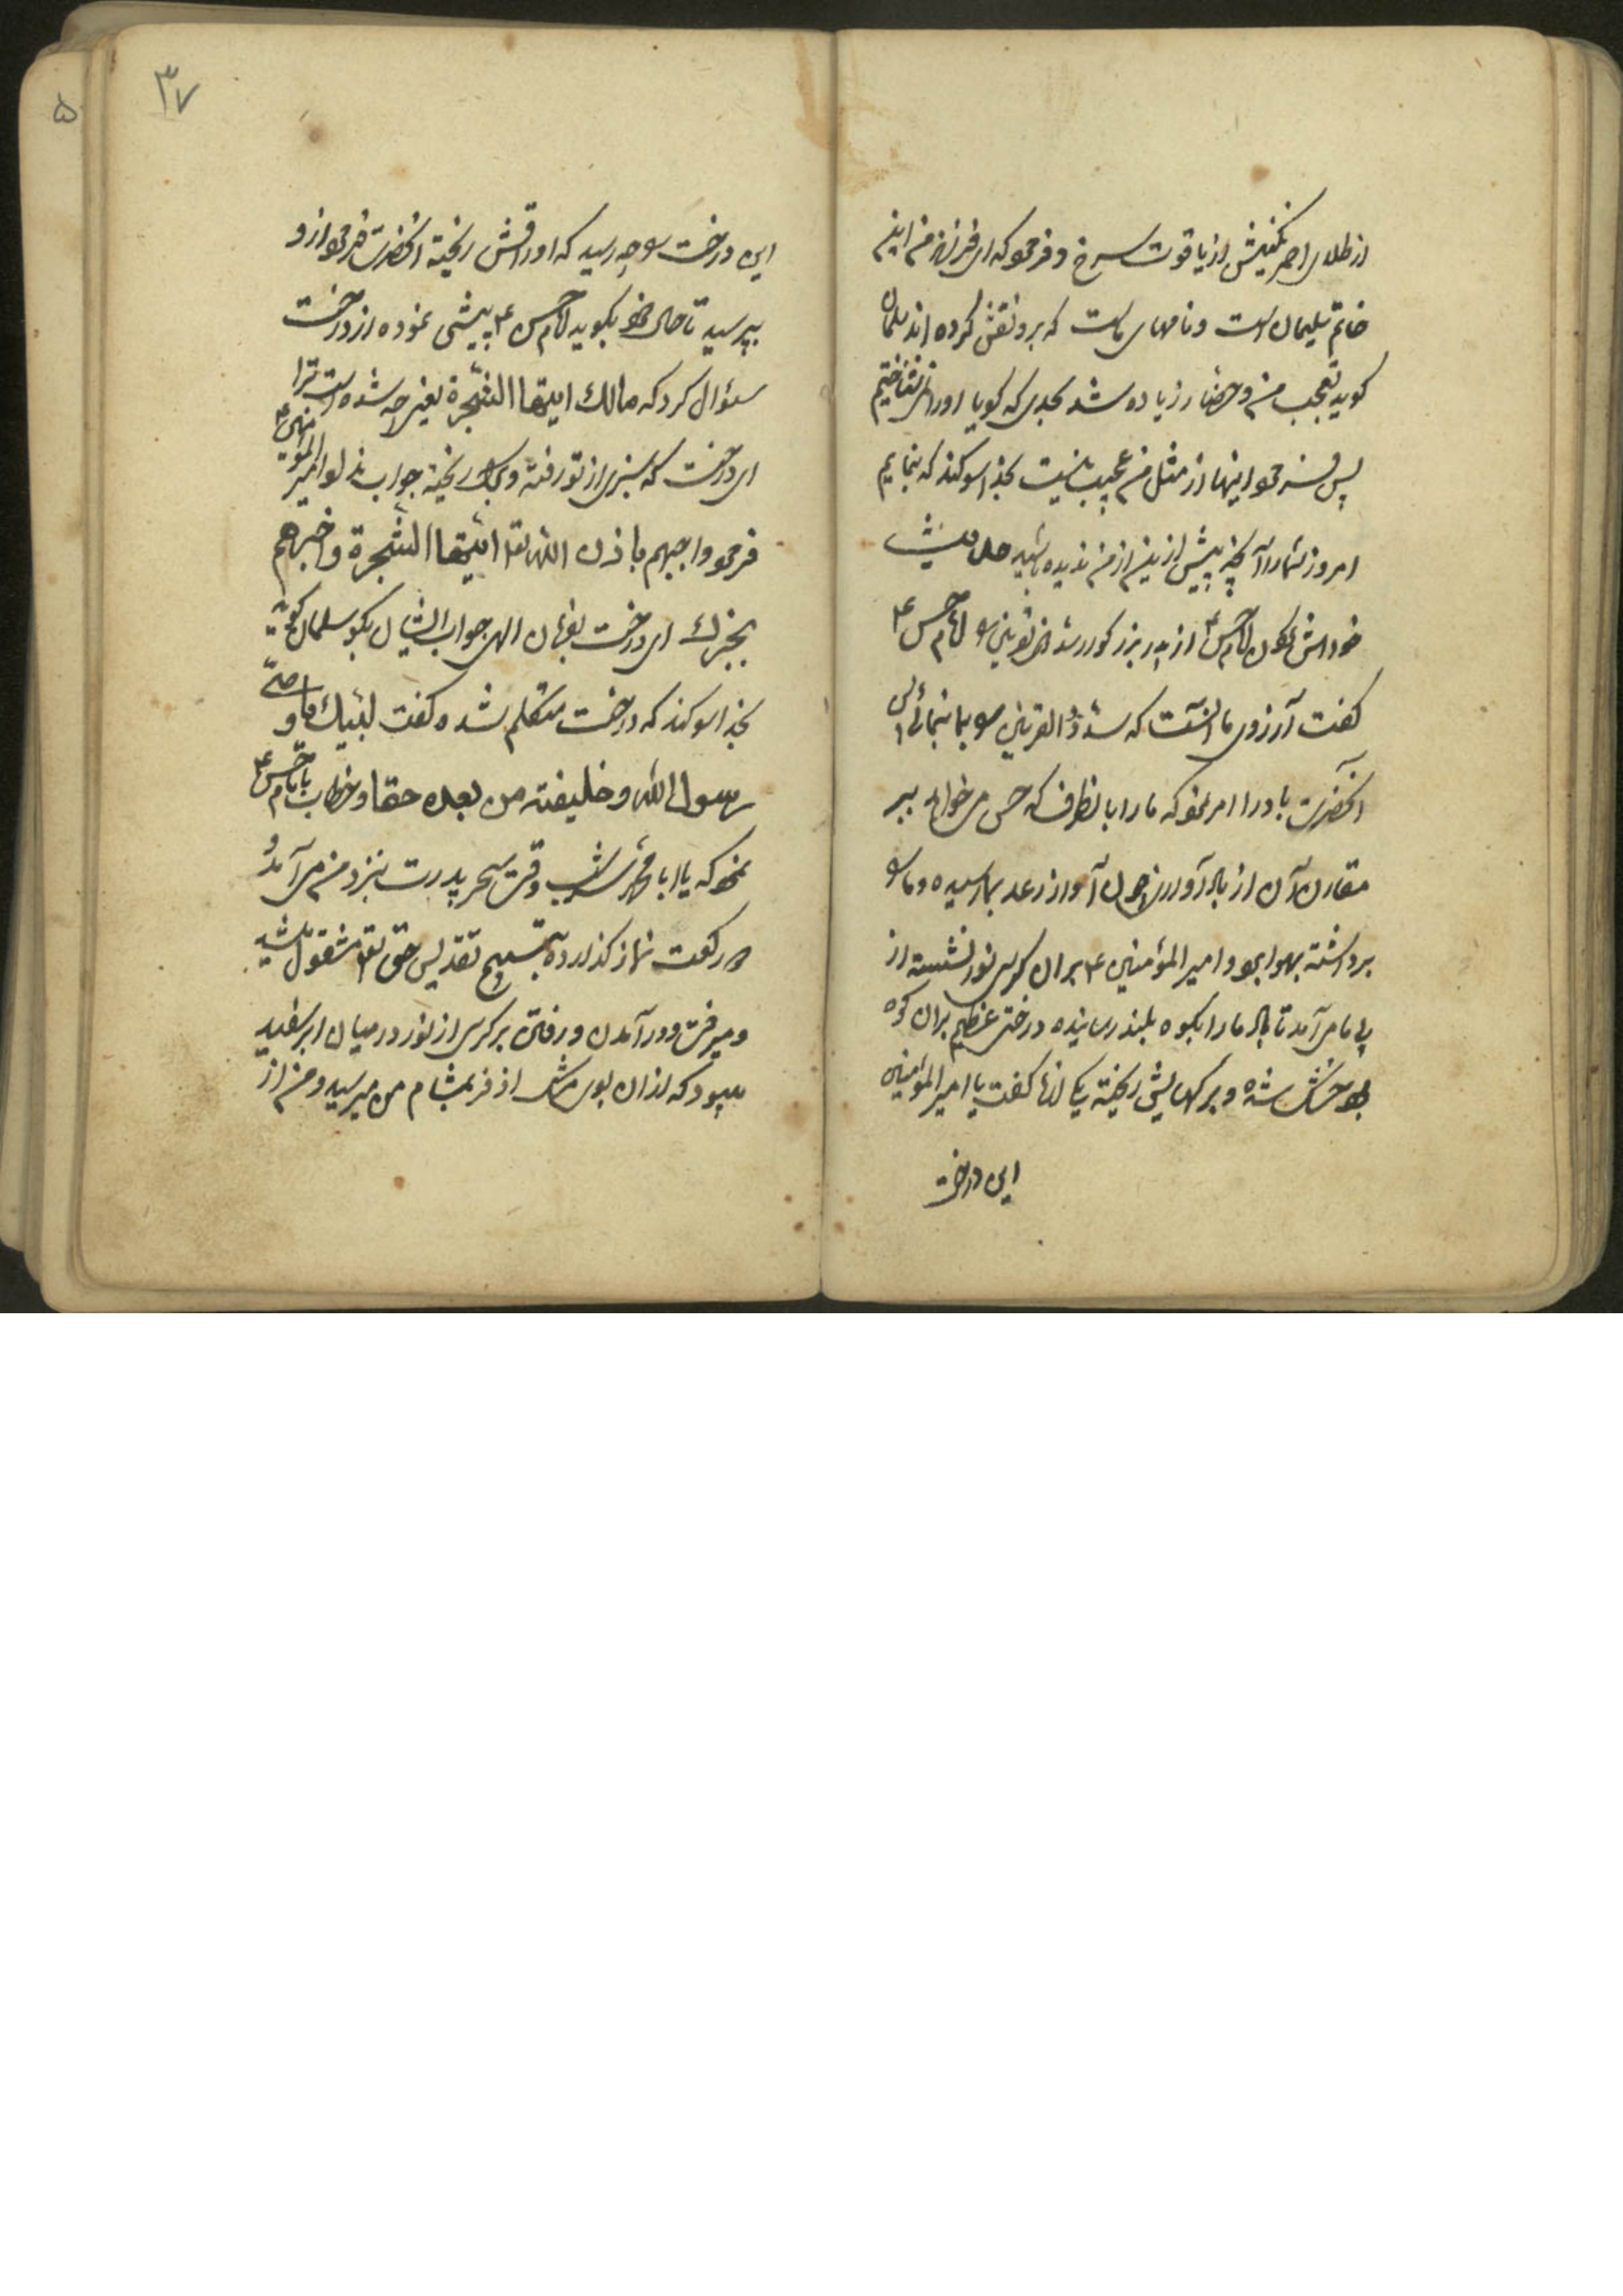 از طلای احمر نگینش از یاقوت سرخ و فرمود که ای فرزند من این
خاتم سلیمان است و نامهای ماست که برو نقش کرده اند سلمان
کوید تعجب من و حضار زیاده شد بحدی که کویا او را نمی شناختیم
پس فرمود اینها از مثل من عجیب نیست بخدا سوکند که بنمایم
امروز شما را آنچه پیش ازین از من ندیده باشید
امام حسن ع از پدر بزرکوار سد ذی القرنین امام حسن ع
کفت آرزوی ما آنست که سد ذو القرنین را بما بنمائی پس
آنحضرت باد را امر نمود که ما را بانطرف که حسن می خواهد ببر
مقارن آن از باد آوازی چون آواز رعد بما رسیده و ما را
برداشته بهوا برد و امیر المؤمنین ع بران کرسی نور نشسته از
پی ما می آمد تا باد ما را بکوه بلند رسانیده درختی عظیم بران کوه
بود خشک شده و برکهایش ریخته یکی از ما کفت یا امیر المؤمنین
این درخت
۳۷
۵
این درخت را چه رسید که اوراقش ریخته آنحضرت فرمود ازو
بپرسید تا حال خود بکوید امام حسن ع پیشی نموده از درخت
سئوال کرد که مالك ایتها الشجرة یعنی چه شده است ترا
ای درخت که سبزی از تو رفته و برك ریخته جواب نداد امیر المؤمنین ع
فرمود اجیبهم باذن الله تعا ایتها الشجرة و اخبرهم
بخبرك ای درخت بفرمان الهی جواب ایشان بکو سلمان کوید
بخدا سوکند که درخت متکلم شده کفت لبیك یا وصی
رسول الله و خلیفته من بعده حقا و خطاب بامام حسن ع
نمود که یا ابا محمد هر شب وقت سحر پدرت بنزد من می آمد و
دو رکعت نماز کذارده بتسبیح و تقدیس حق تعا مشغول میشد
و میرفت و در آمدن و رفتن بر کرسی از نور در میان ابر سفید
میبود که ازان بوی مشك اذفر بمشام من میرسید و من از